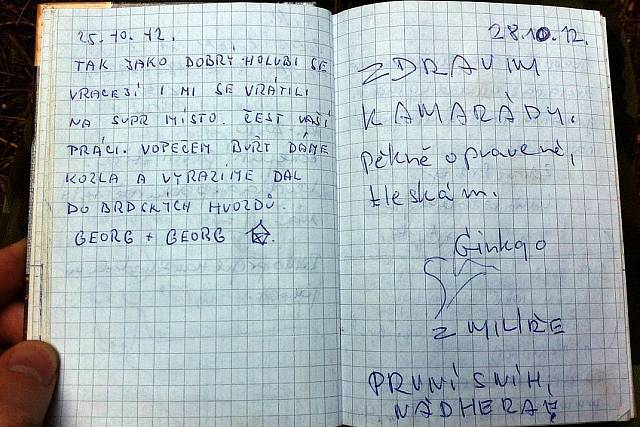 25.10.12.
TAK JAKO DOBRÝ HOLUBI SE
VRACEJÍ I MI SE VRÁTILI
NA SUPR MÍSTO. ČEST VAŠÍ
PRÁCI. VOPEČEM BUŘT DÁME
KOZLA A VYRAZÍME DÁL
DO BRDSKÝCH HVOZDŮ.
GEORG + GEORG
28.10.12.
ZDRAVÍM
KAMARÁDY.
Pěkně opravené,
tleskám.
Ginkgo
Z MILÍŘE
PRVNÍ SNÍH,
NÁDHERA!